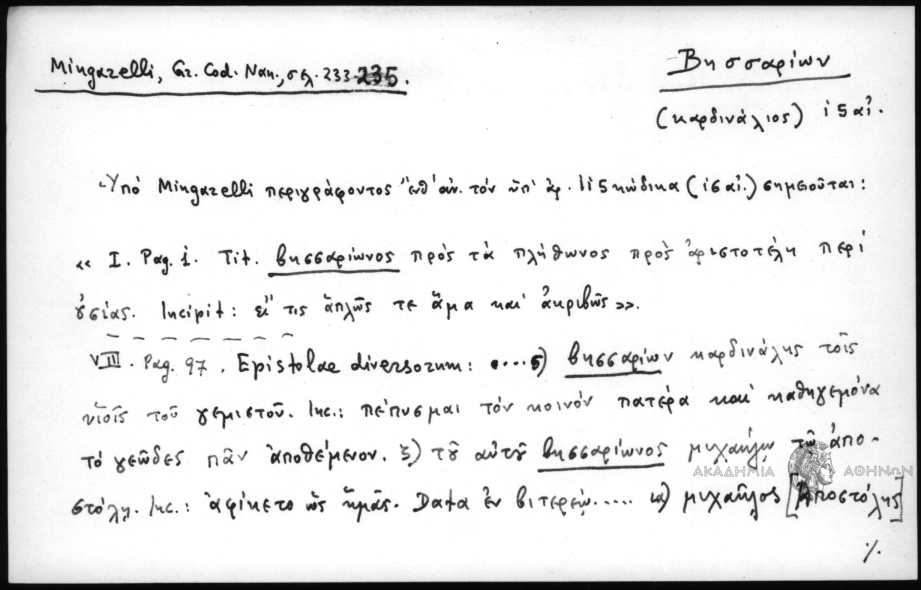 Mingarelli, Gr. Cod. Nan., σελ. 233-235.
Βησσαρίων
(καρδινάλιος) ι5 αἰ.
Ὑπό Mingarelli περιγράφοντος ἔνθ' ἀν. τόν ὑπ' ἀρ. 115 κώδικα (ι5 αἰ.) σημειοῦται:
« I. Pag. 1. Tit. βησσαρίωνος πρὸς τὰ πλήθωνος πρὸς ἀριστοτέλη περί
οὐσίας. Incipit: εἴ τις ἁπλῶς τε ἅμα καὶ ἀκριβῶς».
VIII. Pag. 97. Epistolae diversorum: ....5) βησσαρίων καρδινάλης τοῖς
υἱοῖς τοῦ γεμιστοῦ. Inc.: πέπυσμαι τόν κοινόν πατέρα καὶ καθηγεμόνα
τό γεῶδες πᾶν ἀποθέμενον. ξ) τοῦ αὐτοῦ βησσαρίωνος μιχαήλῳ τῷ ἀπο-
στόλῃ. Inc.: ἀφίκετο ὡς ἡμᾶς. Data ἐν βιτερβίῳ..... ια) μιχαῆλος [Ἀποστόλης]
ΑΚΑΔΗΜΙΑ ΑΘΗΝΩΝ
./.